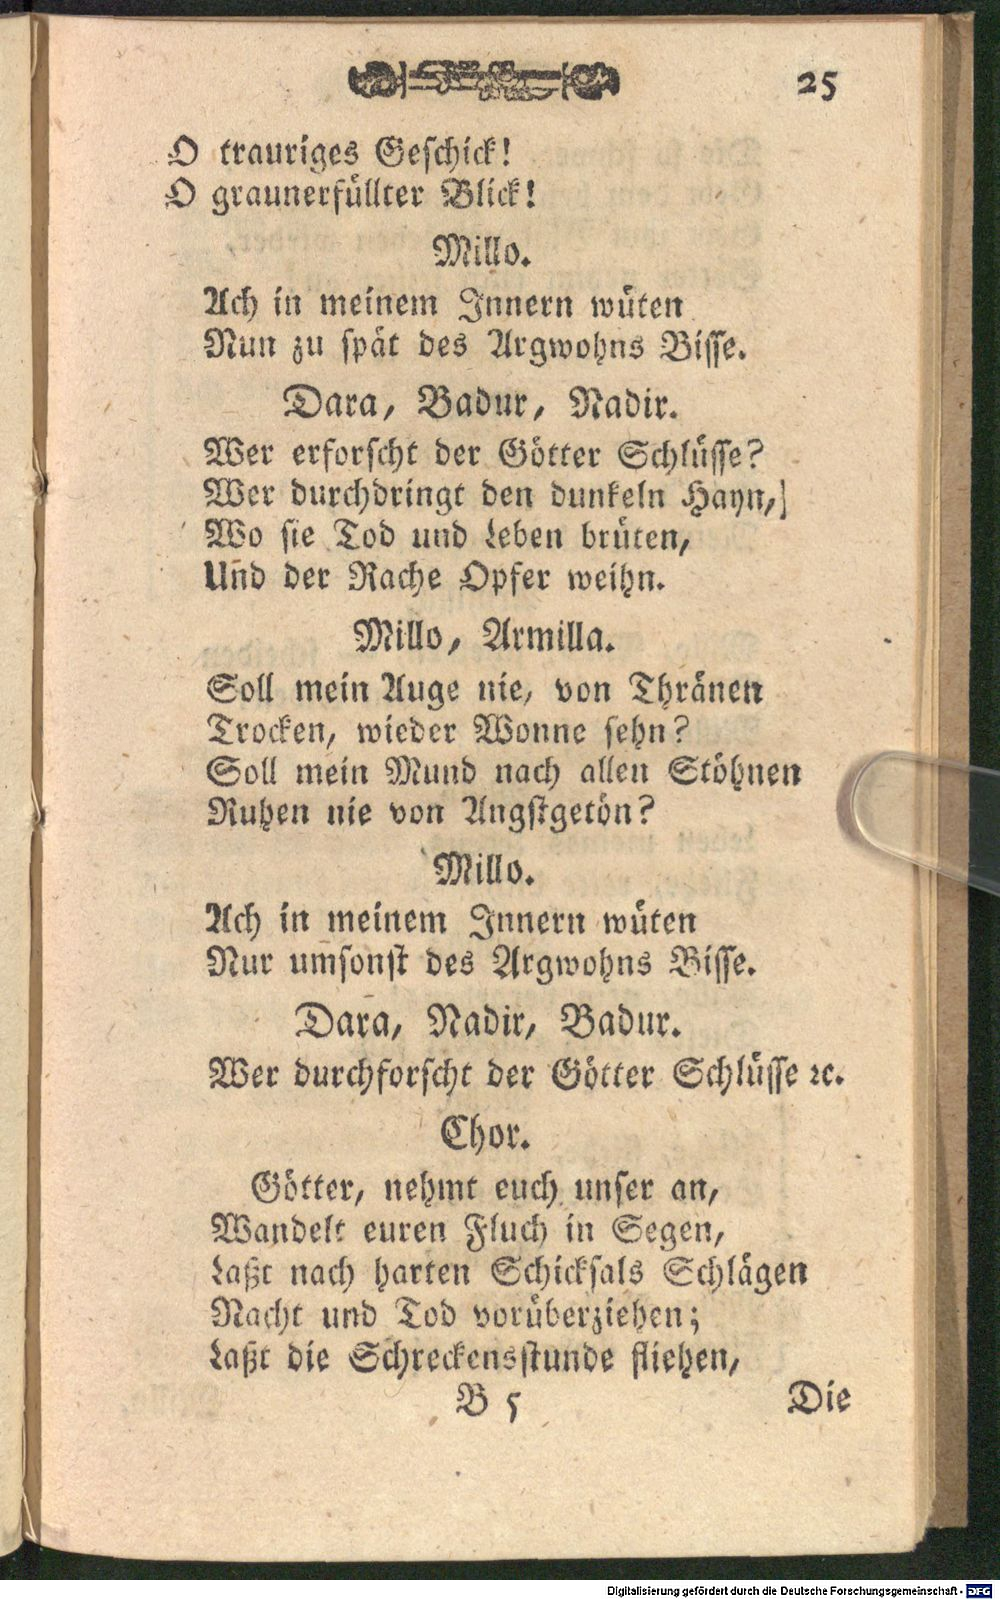 25
O trauriges Geschick!
O graunerfüllter Blick!
Millo.
Ach in meinem Innern wüten
Nun zu spät des Argwohns Bisse.
Dara, Badur, Nadir.
Wer erforscht der Götter Schlüsse?
Wer durchdringt den dunkeln Hayn,
Wo sie Tod und Leben brüten,
Und der Rache Opfer weihn.
Millo, Armilla.
Soll mein Auge nie, von Thränen
Trocken, wieder Wonne sehn?
Soll mein Mund nach allen Stöhnen
Ruhen nie von Angstgetön?
Millo.
Ach in meinem Innern wüten
Nur umsonst des Argwohns Bisse.
Dara, Nadir, Badur.
Wer durchforscht der Götter Schlüsse ꝛc.
Chor.
Götter, nehmt euch unser an,
Wandelt euren Fluch in Segen,
Laßt nach harten Schicksals Schlägen
Nacht und Tod vorüberziehen;
Laßt die Schreckensstunde fliehen,
B 5 Die
Digitalisierung gefördert durch die Deutsche Forschungsgemeinschaft - DFG